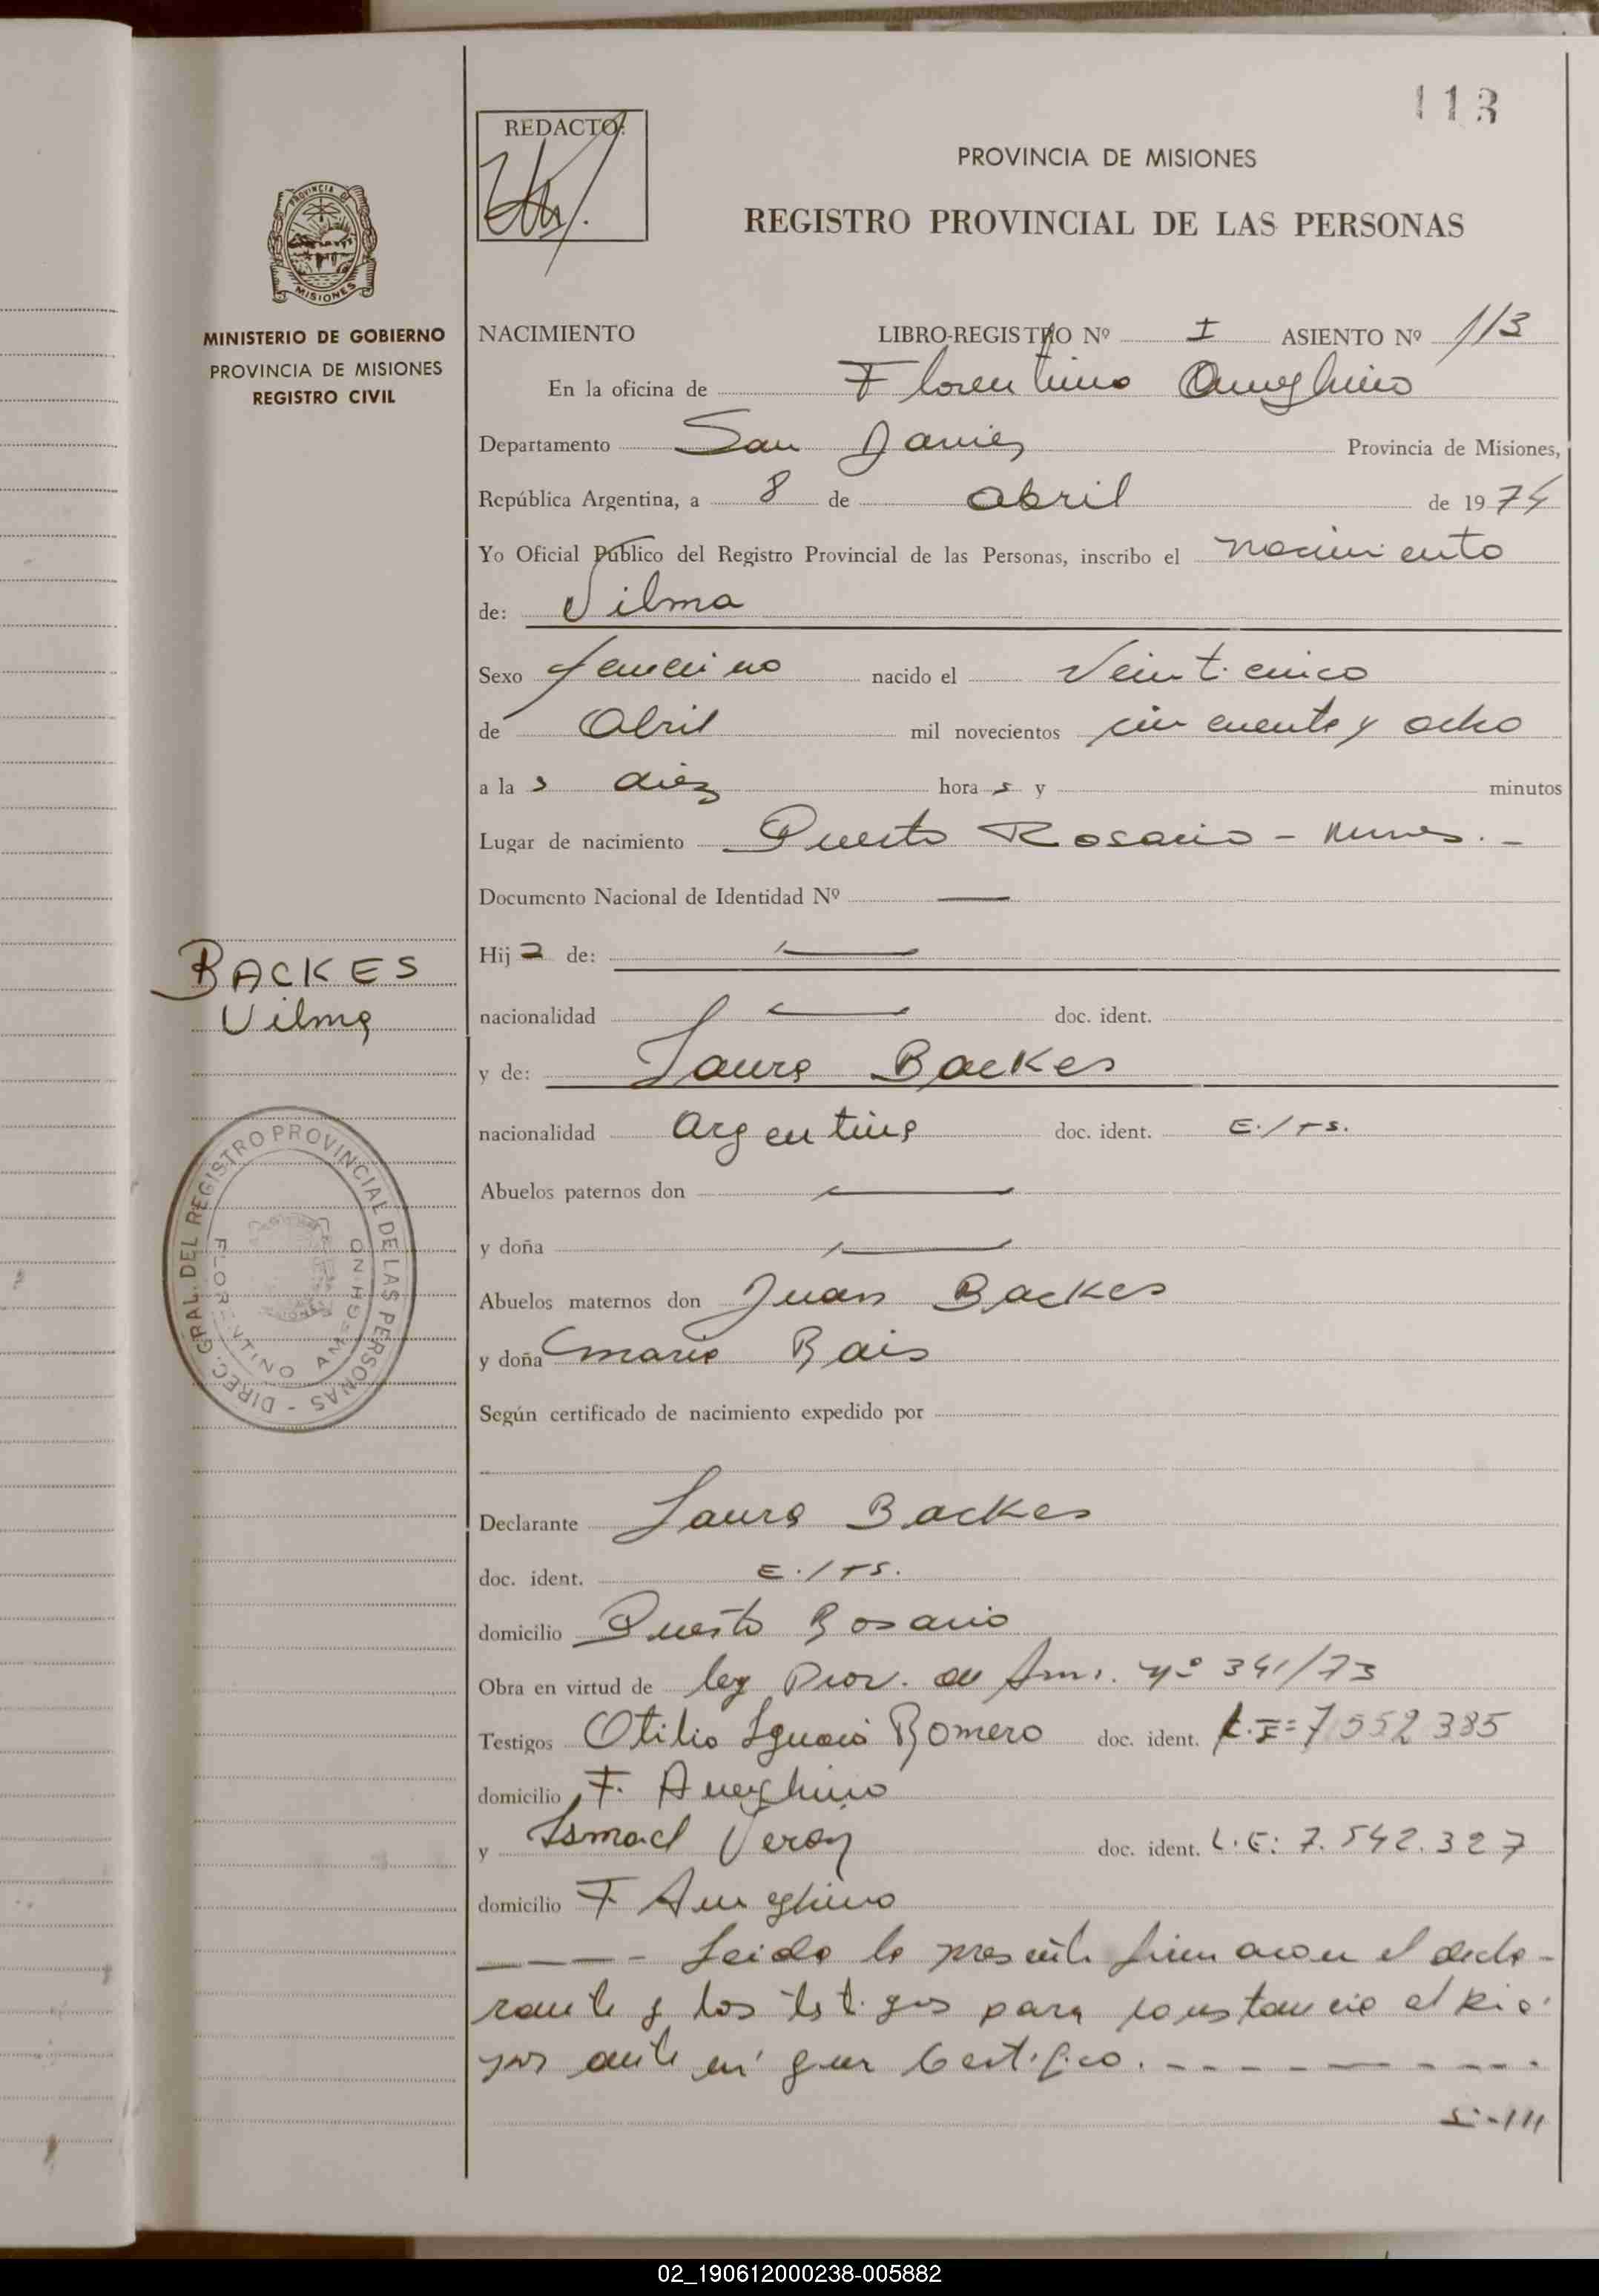 113
REDACTO:
PROVINCIA DE MISIONES
REGISTRO PROVINCIAL DE LAS PERSONAS
PROVINCIA DE MISIONES
MINISTERIO DE GOBIERNO
PROVINCIA DE MISIONES
REGISTRO CIVIL
NACIMIENTO LIBRO-REGISTRO Nº I ASIENTO Nº 113
En la oficina de Florentino Ameghino
Departamento San Javier Provincia de Misiones,
República Argentina, a 8 de abril de 1974
Yo Oficial Público del Registro Provincial de las Personas, inscribo el nacimiento
de: Vilma
Sexo femenino nacido el Veinticinco
de Abril mil novecientos cincuenta y ocho
a las diez horas y minutos
Lugar de nacimiento Puerto Rosario -
Documento Nacional de Identidad Nº —
Hija de: —
nacionalidad — doc. ident.
BACKES
Vilma
y de: Laura Backes
nacionalidad Argentina doc. ident. E./TS.
Abuelos paternos don —
y doña —
Abuelos maternos don Juan Backes
y doña Maria Bais
DIREC. GRAL. DEL REGISTRO PROVINCIAL DE LAS PERSONAS -
FLORENTINO AMEGHINO
Según certificado de nacimiento expedido por
Declarante Laura Backes
doc. ident. E./TS.
domicilio Puerto Rosario
Obra en virtud de ley Prov. de Amn. Nº 341/73
Testigos Otilio Ignacio Romero doc. ident. L.E= 7552385
domicilio F. Ameghino
y Ismael Veron doc. ident. L.E: 7.542.327
domicilio F Ameghino
———- Leida la presente firman con el decla-
rante y los testigos para constancia al pie
por ante mi que Certifico. - - - - - - - -
S:-///
02_190612000238-005882